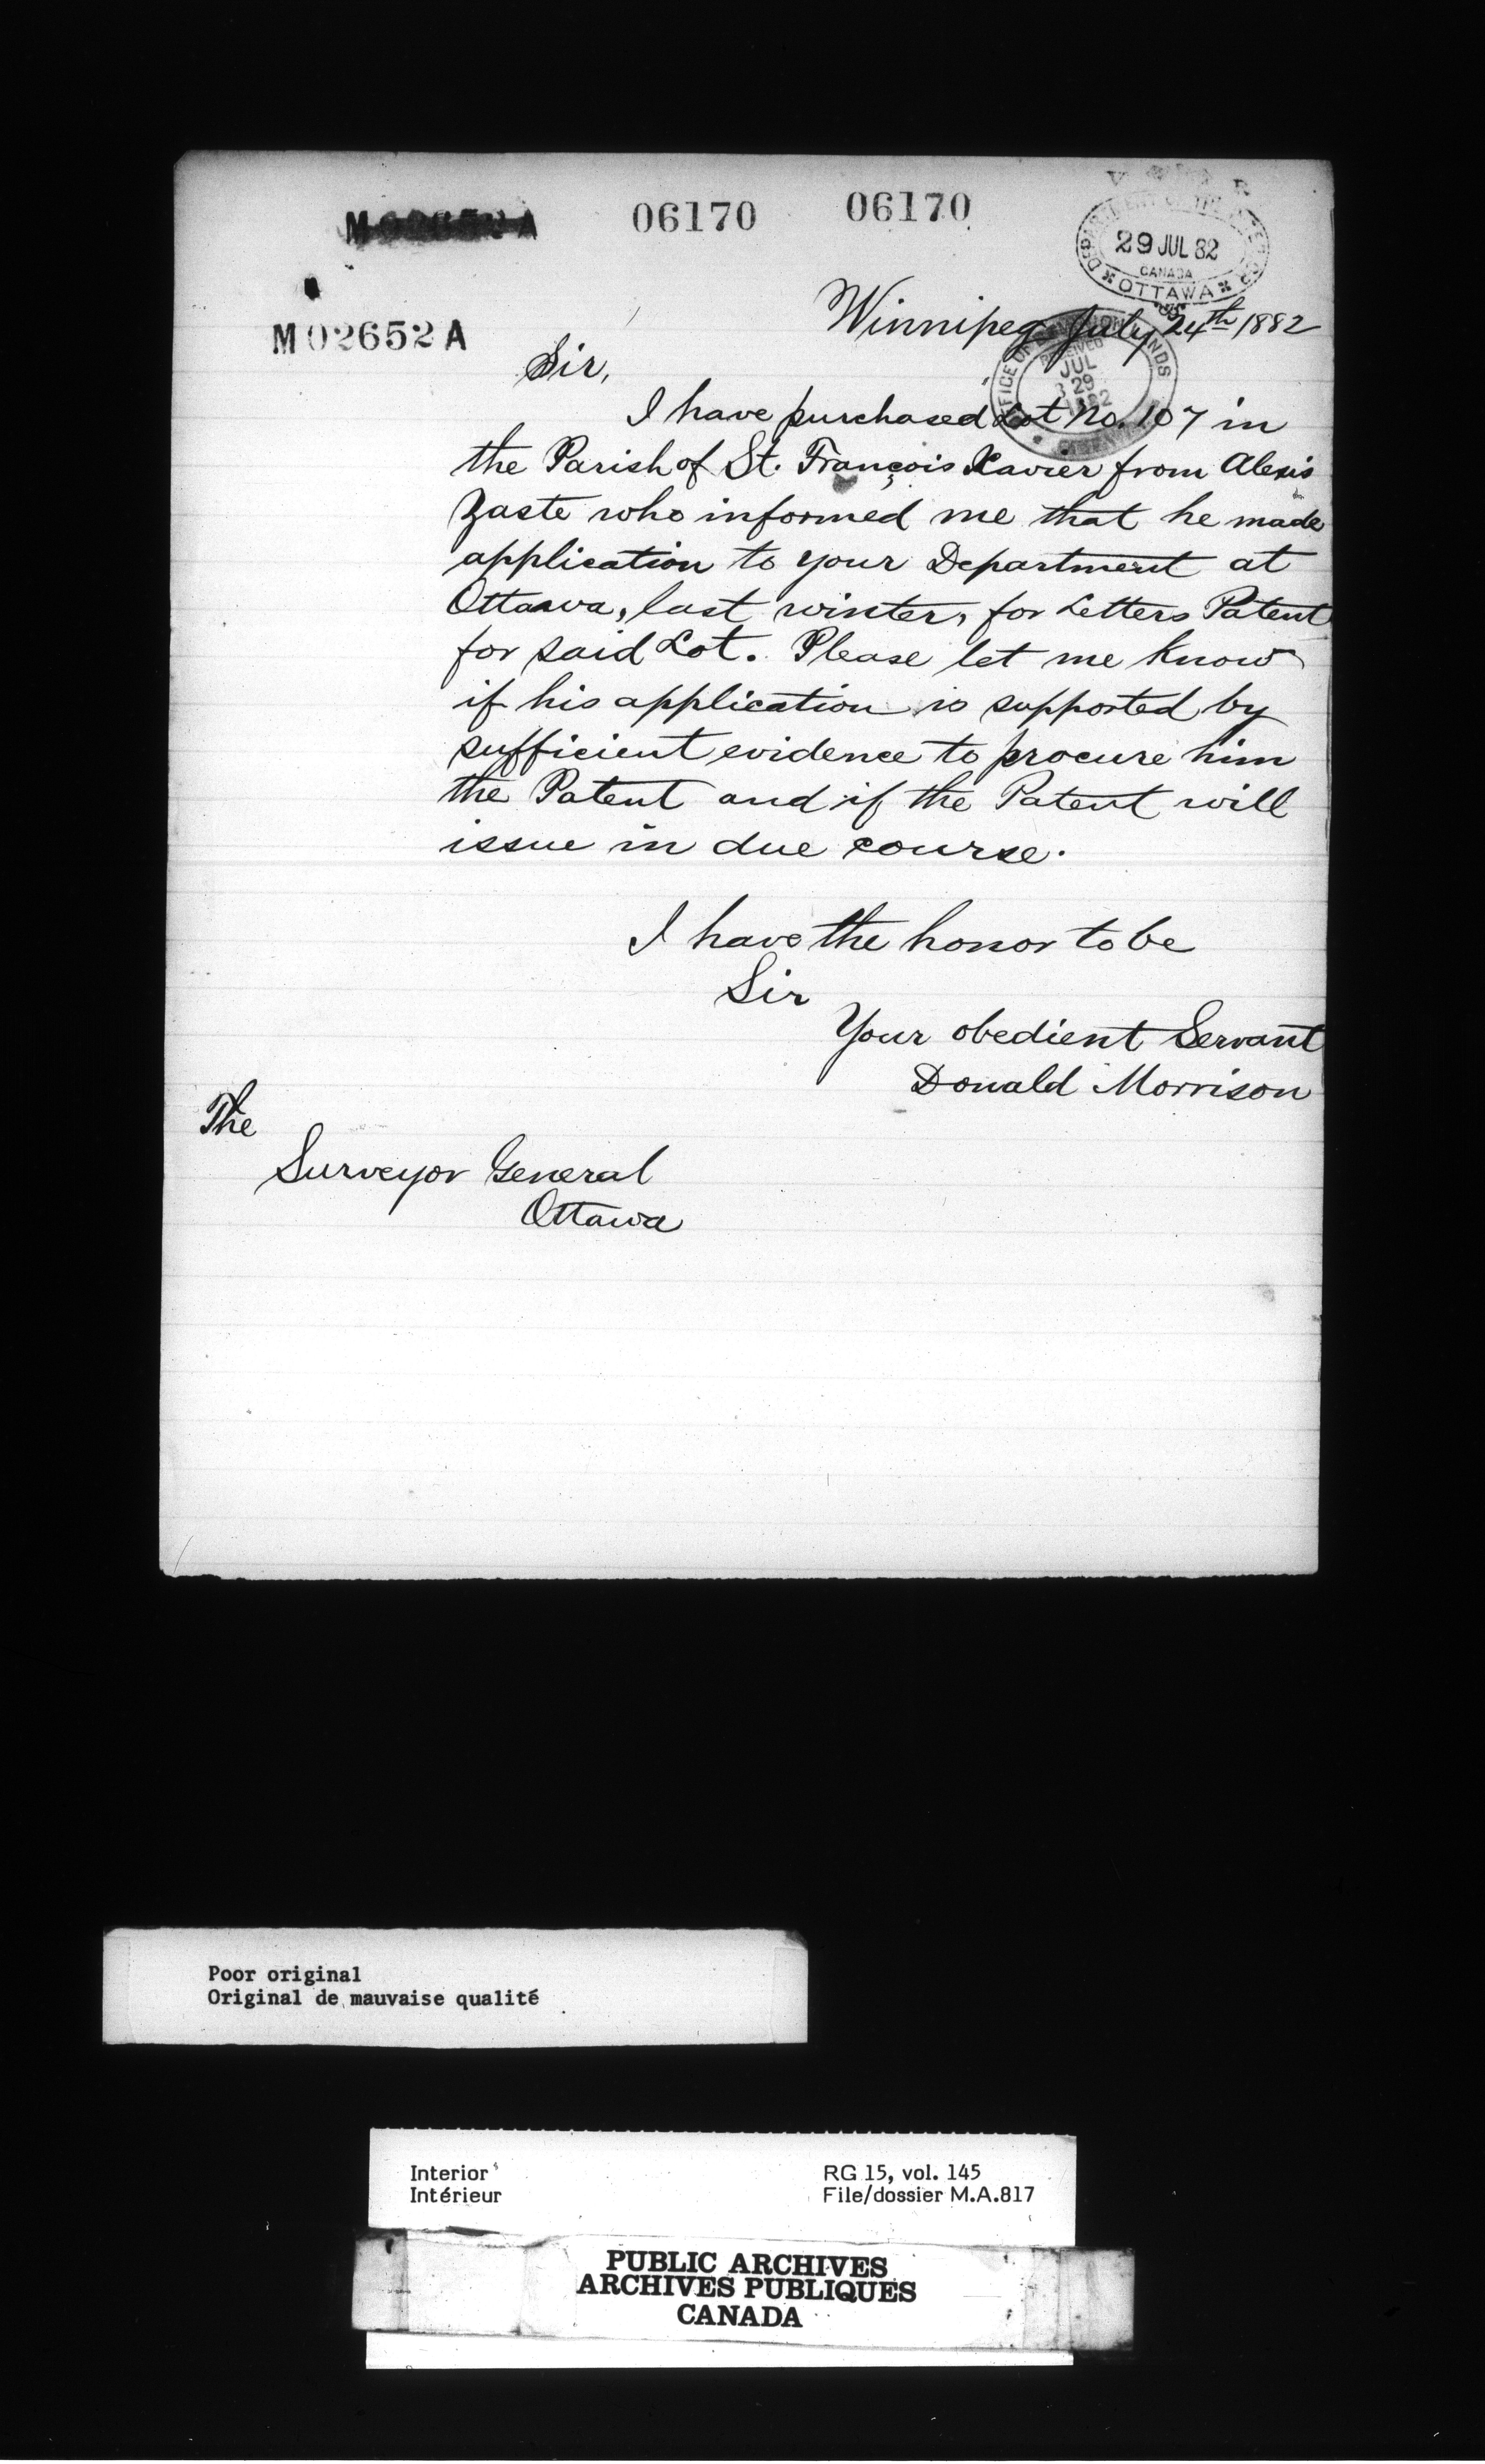 06170 06170
29 JUL 82
CANADA
OTTAWA
M02652A
Winnipeg July 24th 1882
RECEIVED
JUL
29
1882
Sir,
I have purchased Lot No. 107 in
the Parish of St. François Xavier from Alexis
Zaste who informed me that he made
application to your Department at
Ottawa, last winter, for Letters Patent
for said Lot. Please let me know
if his application is supported by
sufficient evidence to procure him
the Patent and if the Patent will
issue in due course.
I have the honor to be
Sir
Your obedient Servant
Donald Morrison
The
Surveyor General
Ottawa
Poor original
Original de mauvaise qualité
Interior RG 15, vol. 145
Intérieur File/dossier M.A.817
PUBLIC ARCHIVES
ARCHIVES PUBLIQUES
CANADA